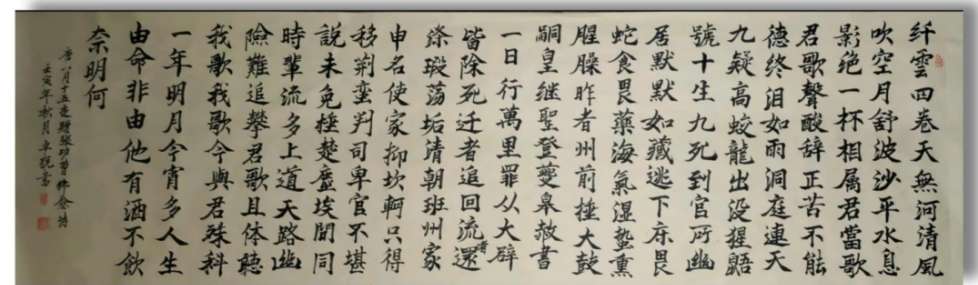 纤雲四卷天無河清風
吹空月舒波沙平水息
影绝一杯相属君當歌
君歌聲酸辞正苦不能
德终泪如雨洞庭連天
九疑高蛟龍出没猩鼯
號十生九死到官所幽
居默默如藏逃下床畏
蛇食畏藥海氣湿蛰熏
腥臊昨者州前捶大鼓
嗣皇继聖登夔皋赦書
一日行萬里罪从大辟
皆除死迁者追回流者還
滌瑕荡垢清朝班州家
申名使家抑坎軻只得
移荆蛮判司卑官不堪
説未免捶楚塵埃間同
時輩流多上道天路幽
險難追攀君歌且体聽
我歌我歌今與君殊科
一年明月今宵多人生
由命非由他有酒不飲
奈明何
唐八月十五夜贈張功曹韩愈诗
壬寅年秋月書